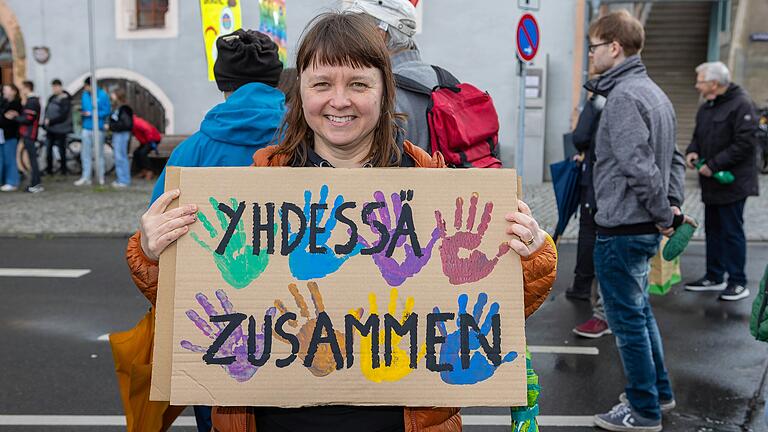 YHDESSÄ
ZUSAMMEN